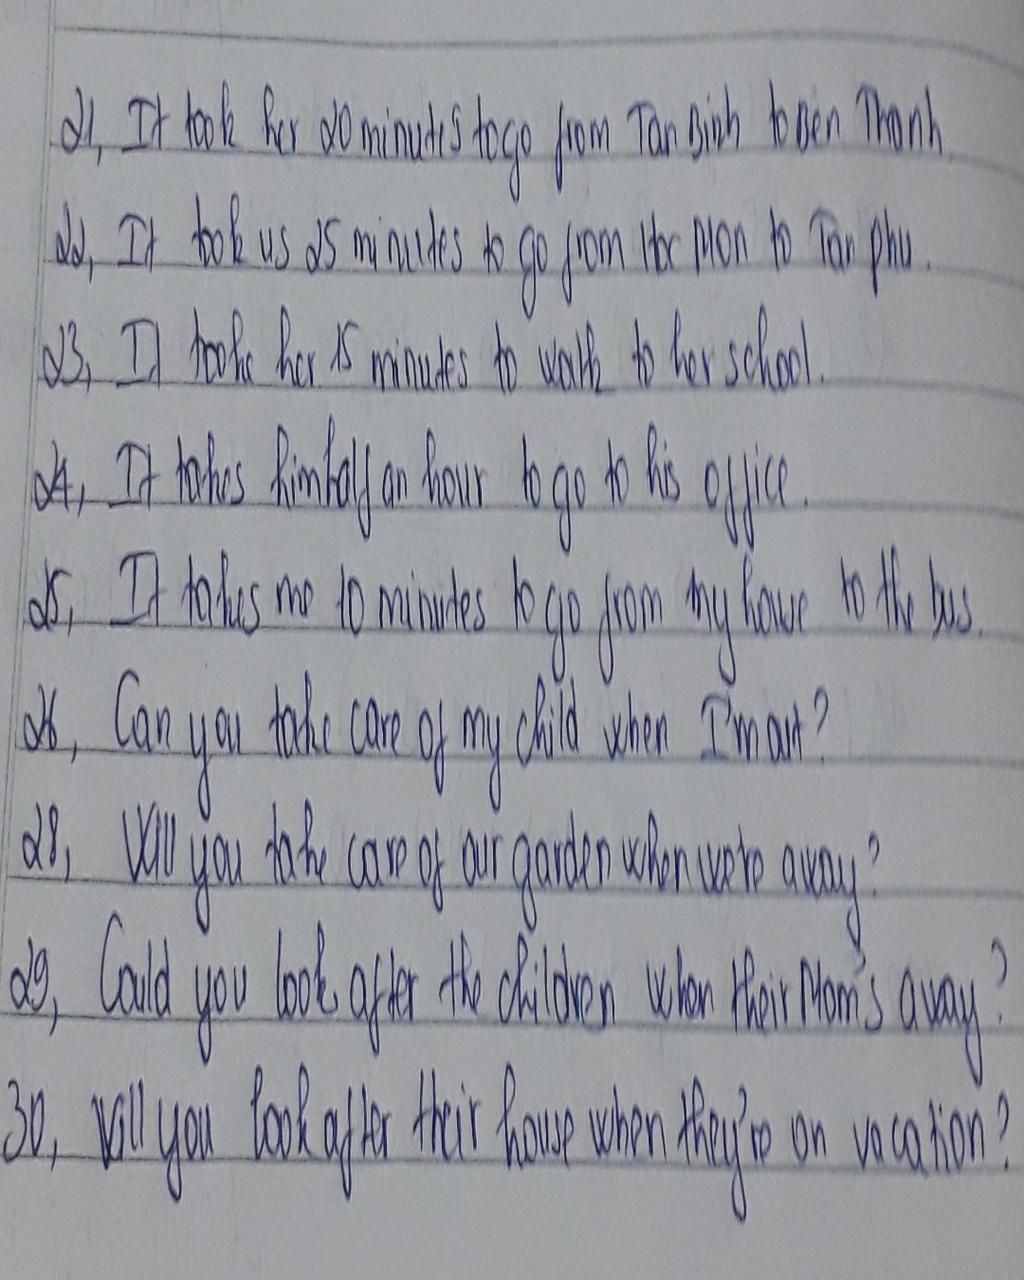 21, It took her 20 minutes to go from Tan Binh to Ben Thanh
22, It took us 25 minutes to go from Hoc Mon to Tan phu.
23, It took her 15 minutes to walk to her school.
24, It takes him half an hour to go to his office.
25, It takes me 10 minutes to go from my house to the bus.
26, Can you take care of my child when I'm out?
28, Will you take care of our garden when we're away?
29, Could you look after the children when their Mom's away?
30, Will you look after their house when they're on vacation?